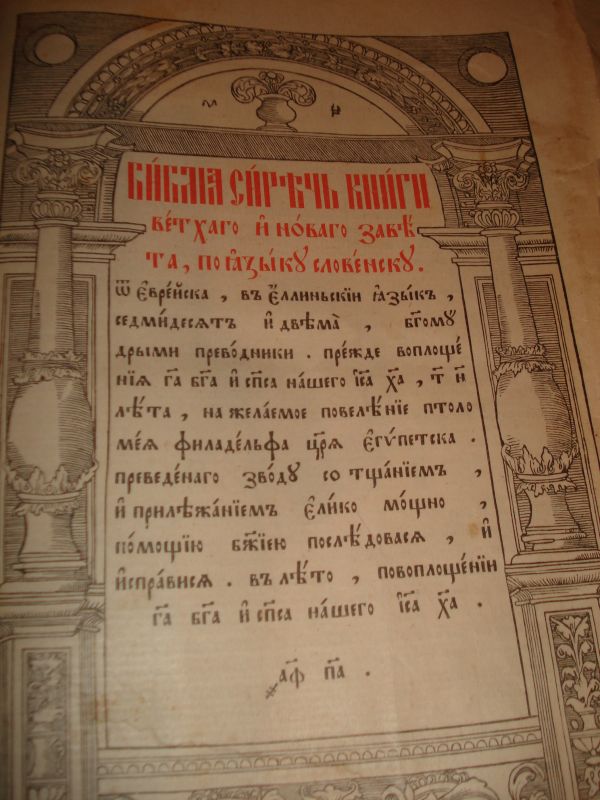 БИ́БЛІА СИ́РѢЧЬ КНИ́ГИ
ве́тхаго и҆ но́ваго завѣ́
та, по ꙗ҆зы́ку слове́нску.
ѿ є҆вре́йска, въ є҆́ллиньскїи ꙗ҆зы́къ,
седмидесѧтъ и҆ двѣма̀, бг҃ому
дрыми прево́дники. пре́жде воплоще́
нїѧ гд҃а бг҃а и҆ сп҃са на́шего і҆с҃а х҃а, т҃ н҃
лѣ́та, на жела́емое повелѣ́нїе птоло
ме́ѧ филаде́льфа цр҃ѧ є҆гѵ́петска.
преведе́наго зво́ду со тща́нїемъ,
и҆ прилѣжа́нїемъ є҆ли́ко мо́щно,
по́мощїю бж҃їею послѣ́довасѧ, и҆
и҆спра́висѧ. въ лѣ́то, повоплоще́нїи
гд҃а бг҃а и҆ сп҃са на́шего і҆с҃а х҃а.
҂аф҃ па҃.